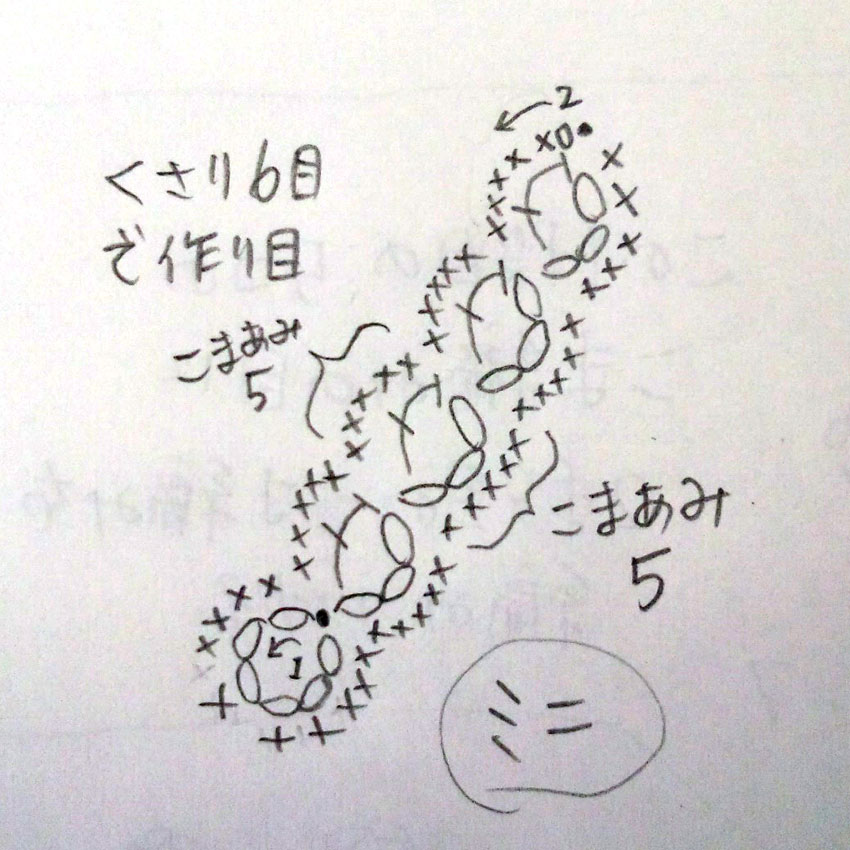 2
くさり6目
で作り目
こまあみ
5
こまあみ
5
1
ミニ